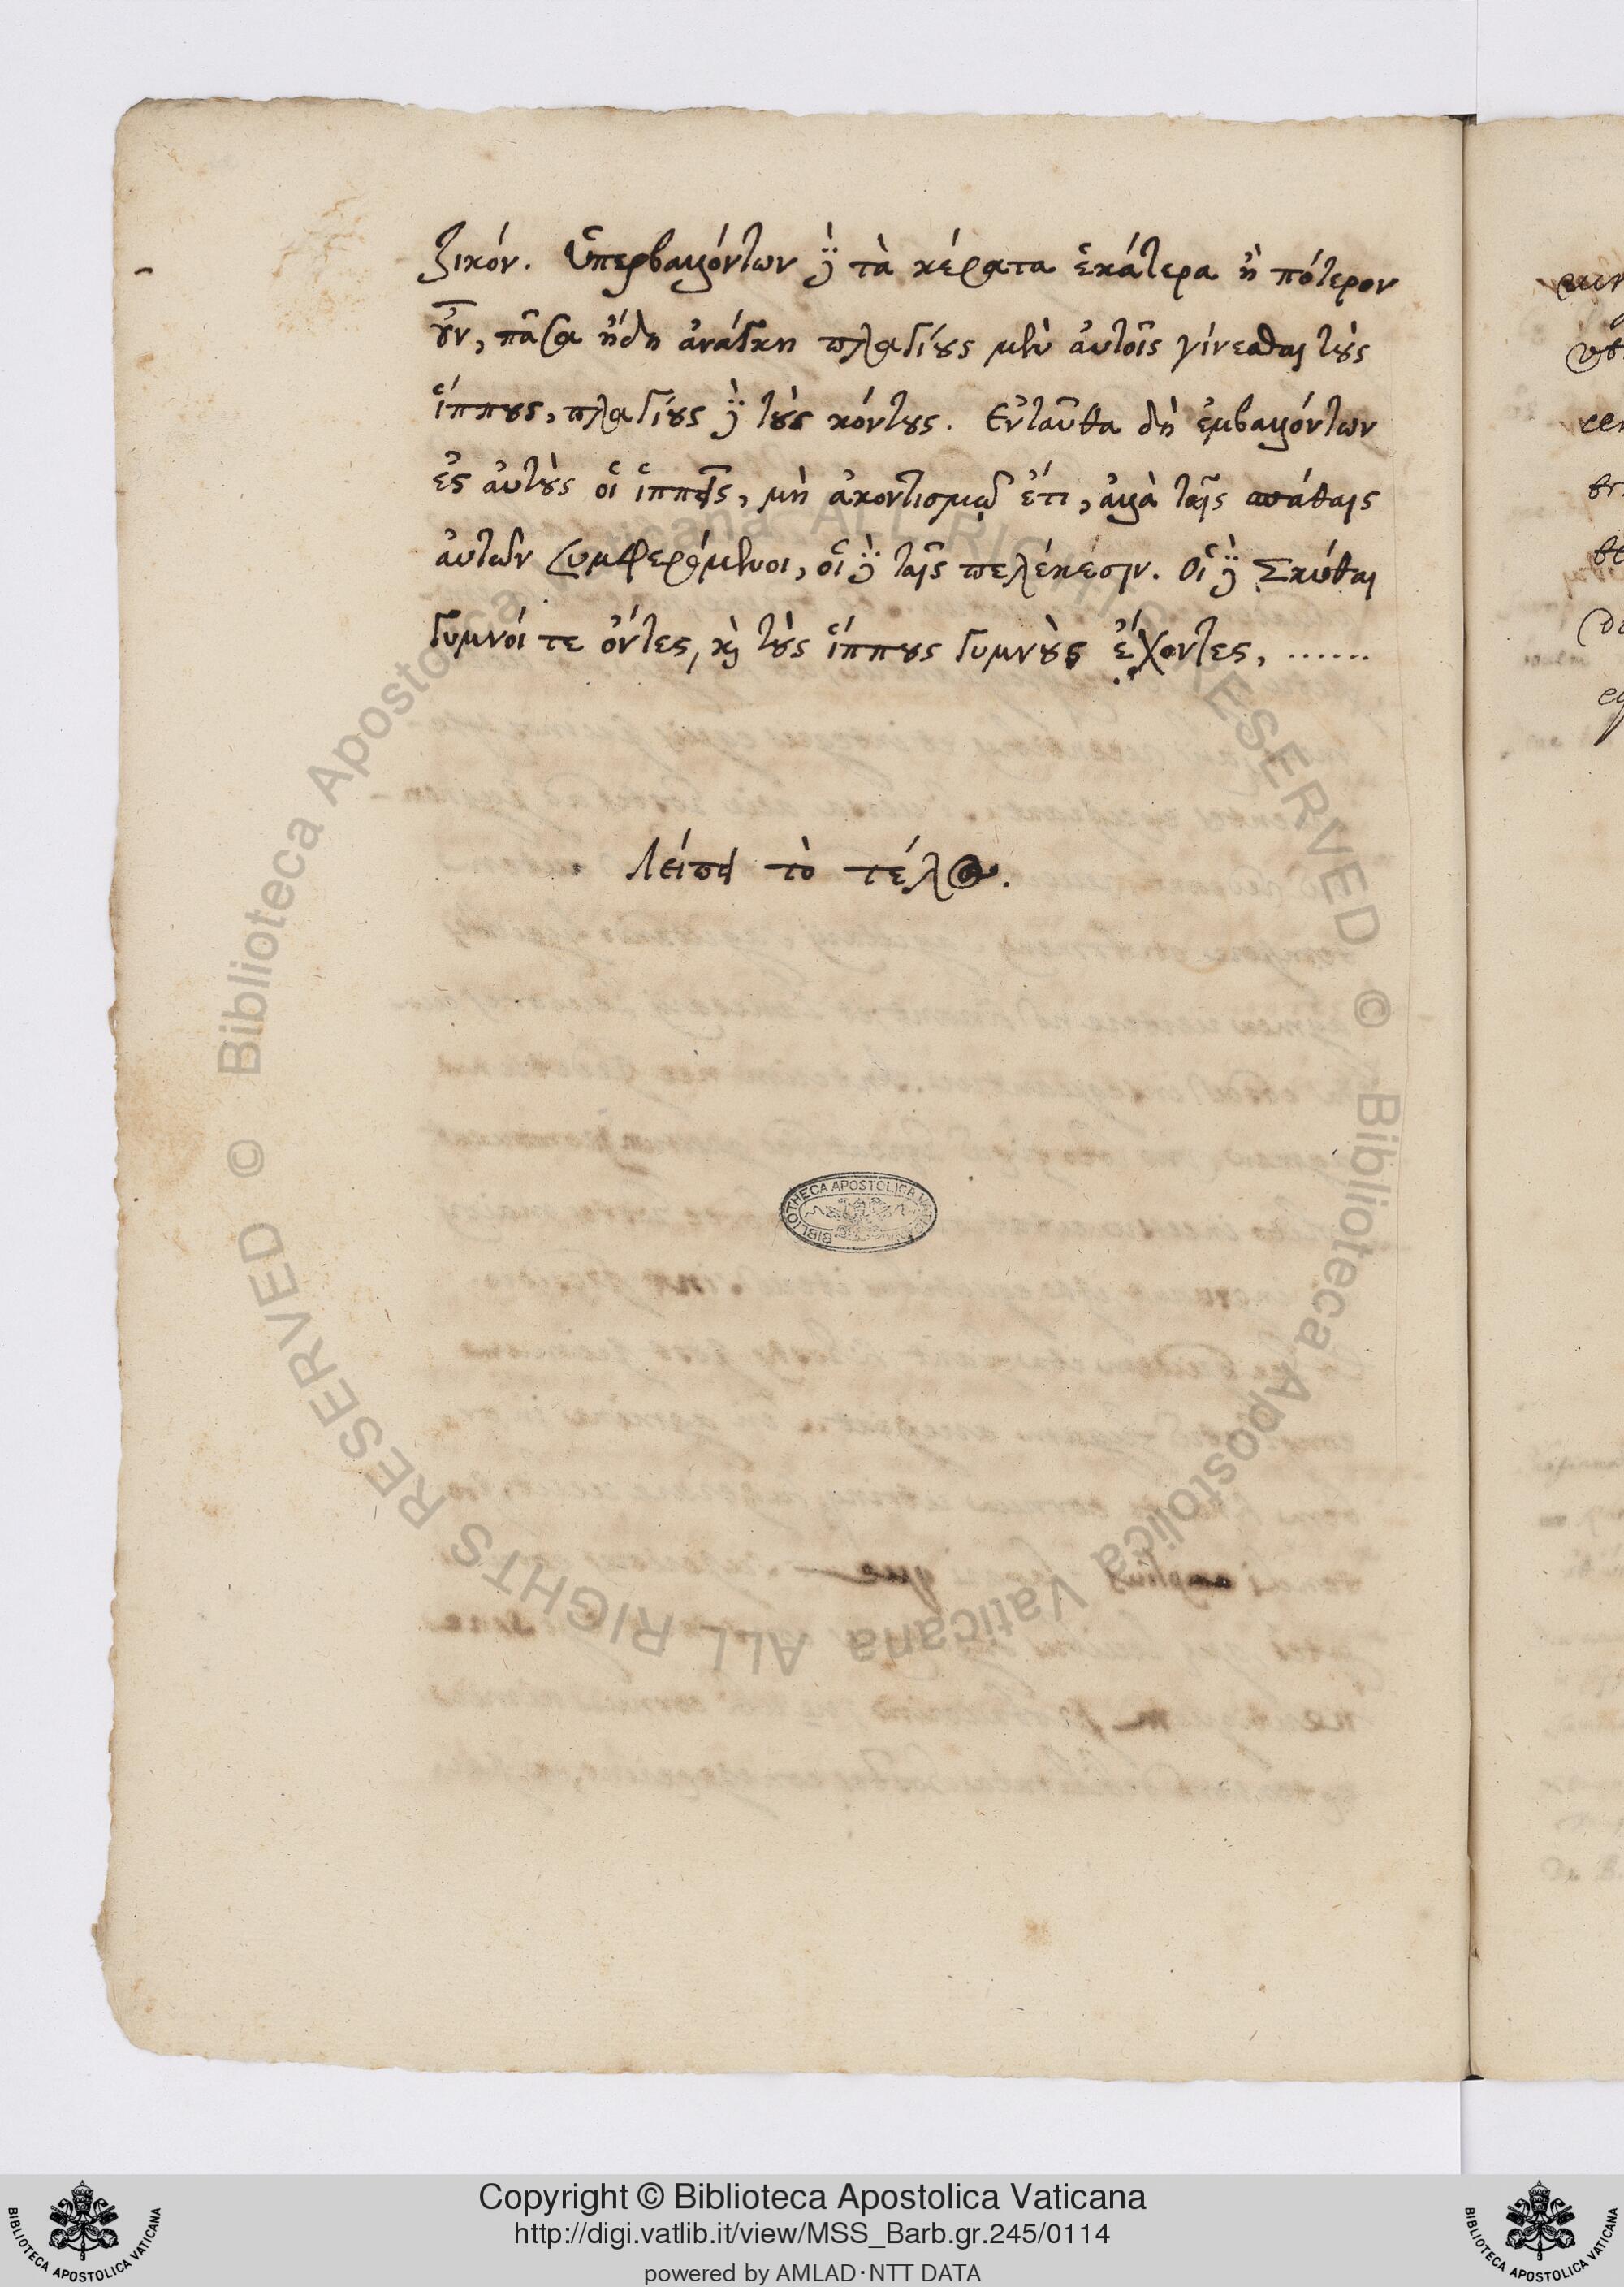 ξικόν. Ὑπερβαλλόντων δὲ τὰ κέρατα ἑκάτερα ἢ πότερον
οὖν, πᾶσα ἤδη ἀνάγκη πλαγίους μὲν αὐτοῖς γίνεσθαι τοὺς
ἵππους, πλαγίους δὲ τοὺς κόντους. Ενταῦθα δὴ ἐμβαλλόντων
ἐς αὐτοὺς οἱ ἱππεῖς, μὴ ἀκοντισμῷ ἔτι, ἀλλὰ ταῖς σπάθαις
αὐτῶν συμφερόμενοι, οἱ δὲ ταῖς πελέκεσιν. Οἱ δὲ Σκύθαι
γυμνοί τε ὄντες, καὶ τοὺς ἵππους γυμνοὺς ἔχοντες, ......
λείπει τὸ τέλος.
BIBLIOTHECA APOSTOLICA VATICANA
© Biblioteca Apostolica Vaticana ALL RIGHTS RESERVED
© Biblioteca Apostolica Vaticana ALL RIGHTS RESERVED
Copyright © Biblioteca Apostolica Vaticana
http://digi.vatlib.it/view/MSS_Barb.gr.245/0114
powered by AMLAD·NTT DATA
BIBLIOTECA APOSTOLICA VATICANA
BIBLIOTECA APOSTOLICA VATICANA